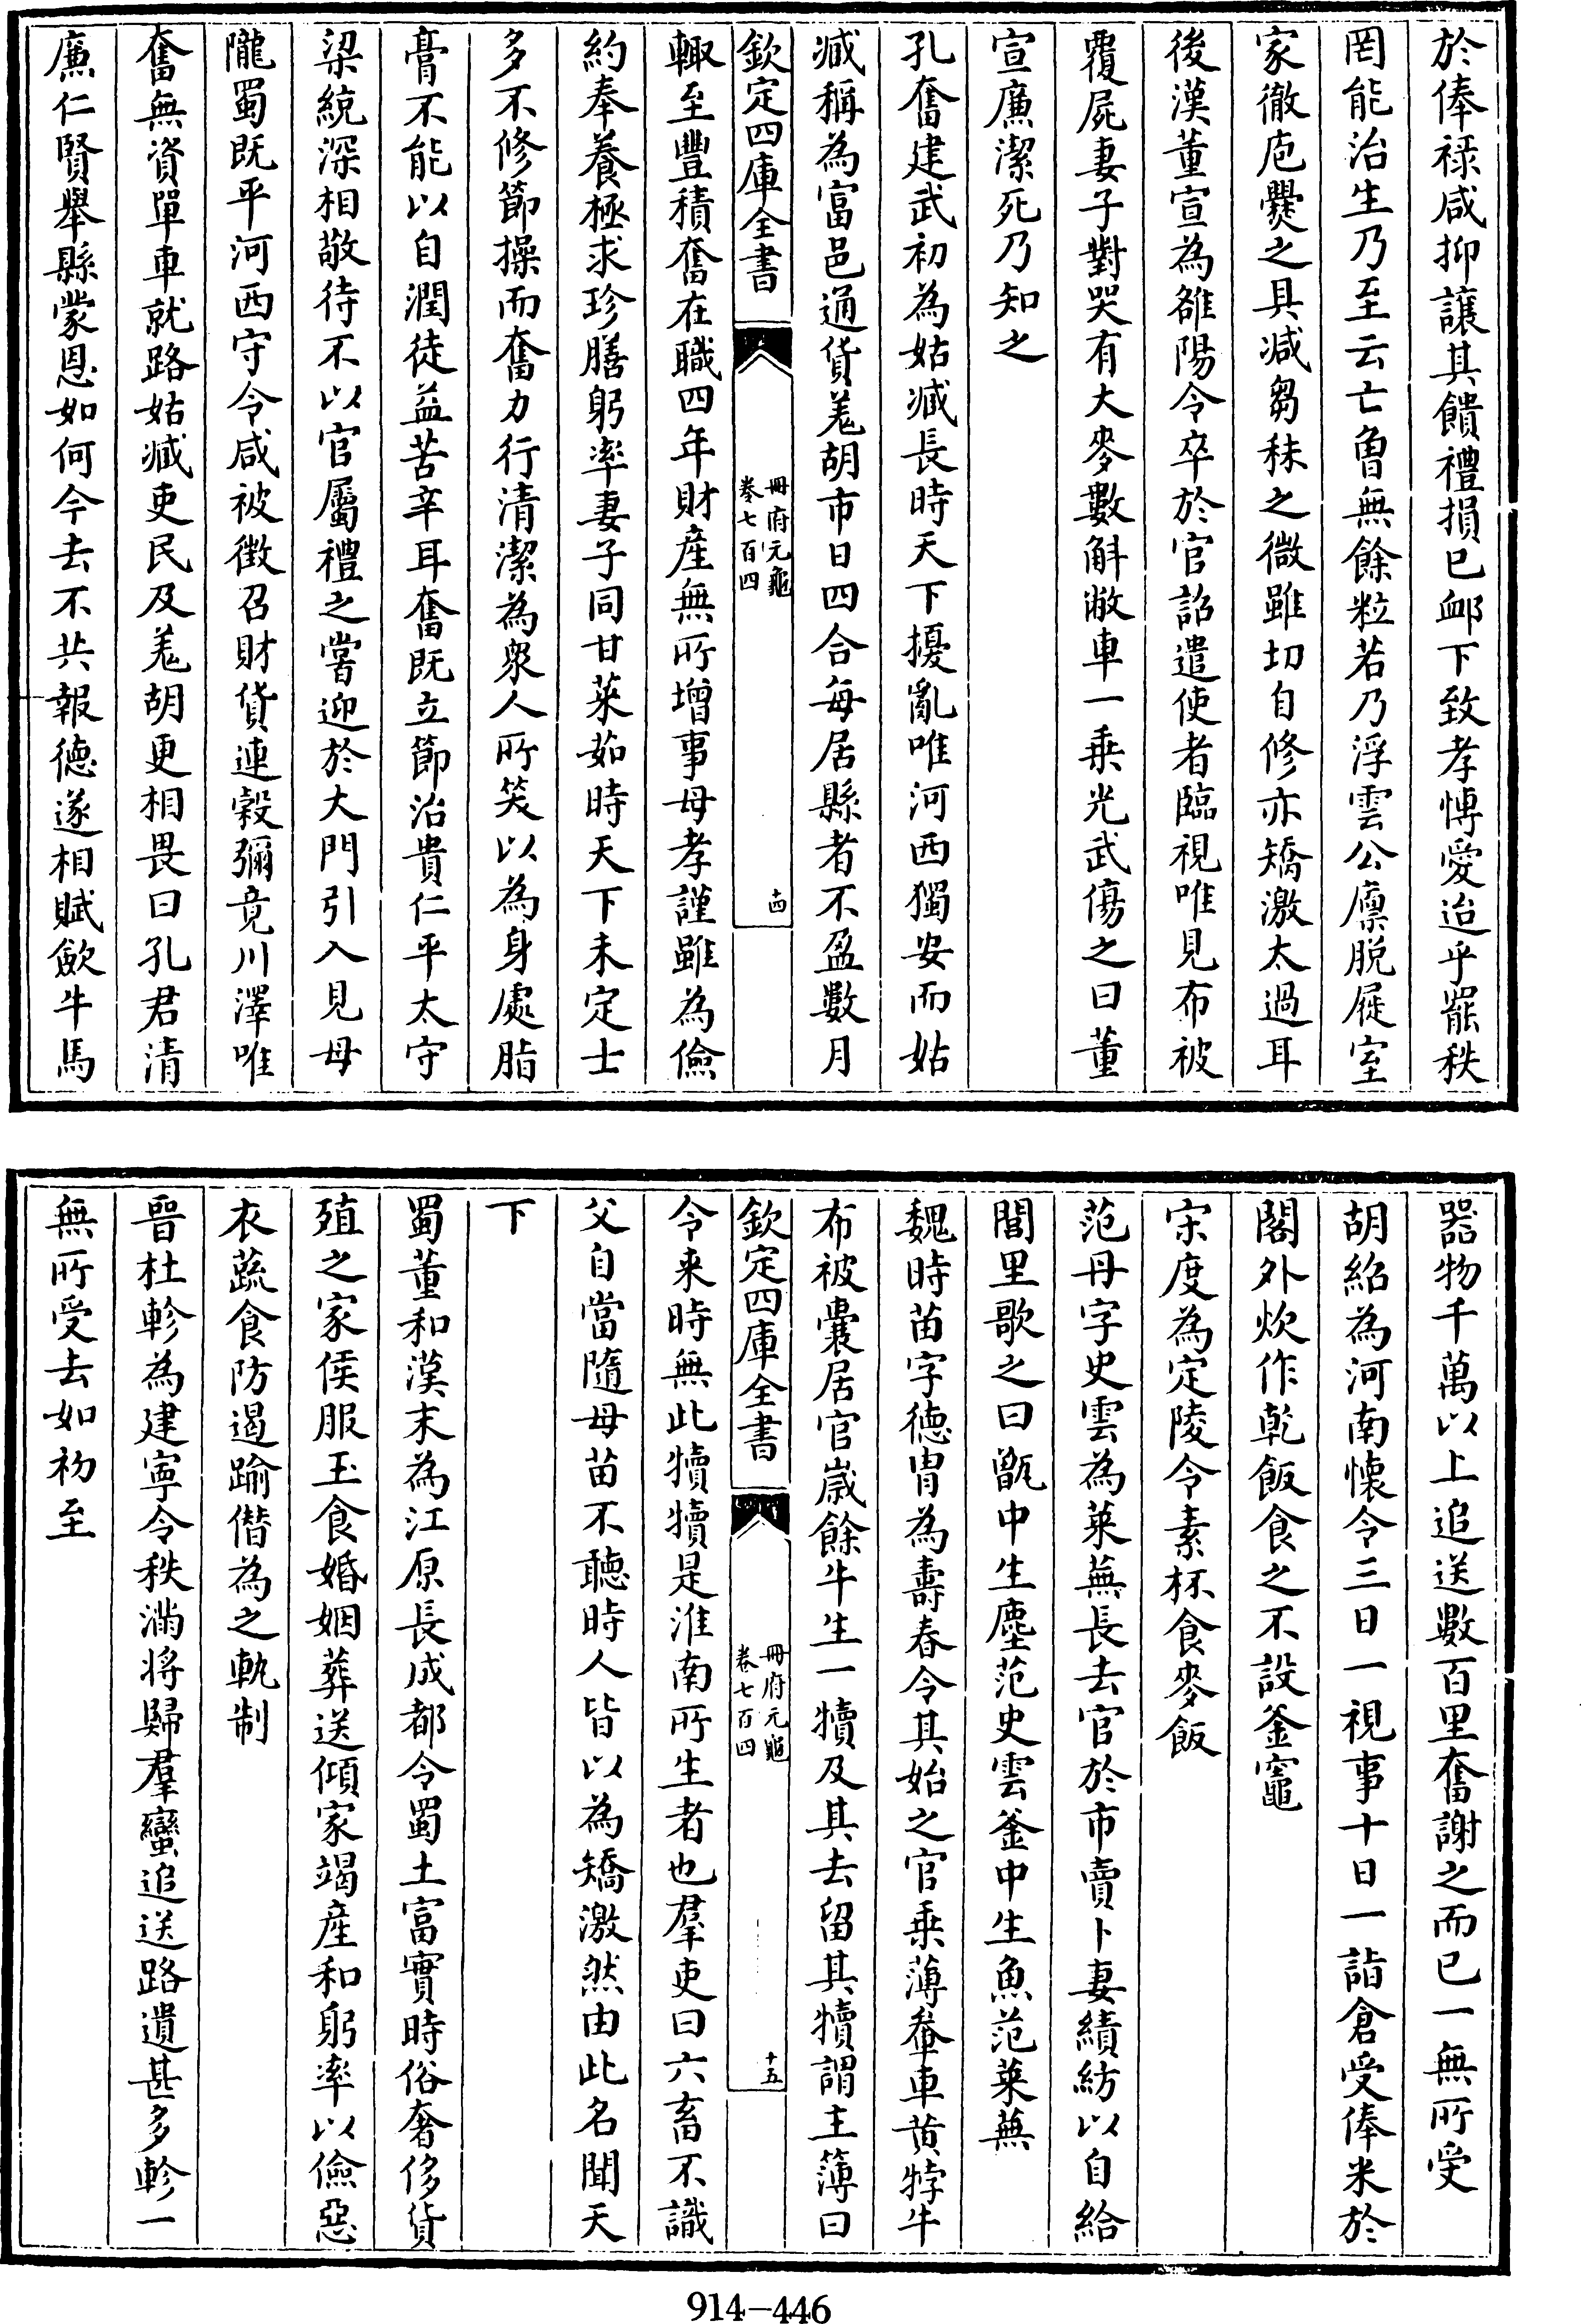 於俸禄咸抑讓其饋禮損已䘏下致孝愽愛迨乎罷秩
罔能治生乃至云亡曽無餘粒若乃浮雲公廪脱屣室
家徹庖爨之具减芻秣之微雖切自修亦矯激太過耳
後漢董宣為雒陽令卒於官詔遣使者臨視唯見布被
覆屍妻子對哭有大麥數斛敝車一乗光武傷之曰董
宣廉潔死乃知之
孔奮建武初為姑臧長時天下擾亂唯河西獨安而姑
臧稱為富邑通貨羗胡市日四合每居縣者不盈數月
欽定四庫全書
冊府元龜
卷七百四
十四
輙至豐積奮在職四年財産無所增事母孝謹雖為儉
約奉養極求珍膳躬率妻子同甘菜茹時天下未定士
多不修節操而奮力行清潔為衆人所笑以為身處脂
膏不能以自潤徒益苦辛耳奮既立節治貴仁平太守
梁統深相敬待不以官屬禮之嘗迎於大門引入見母
隴蜀既平河西守令咸被徴召財貨連轂彌竟川澤唯
奮無資單車就路姑臧吏民及羗胡更相畏曰孔君清
廉仁賢舉縣蒙恩如何今去不共報徳遂相賦歛牛馬
器物千萬以上追送數百里奮謝之而已一無所受
胡紹為河南懐令三日一視事十日一詣倉受俸米於
閣外炊作乾飯食之不設釜竈
宋度為定陵令素杯食麥飯
范丹字史雲為萊蕪長去官於市賣卜妻績紡以自給
閭里歌之曰甑中生塵范史雲釜中生魚范萊蕪
魏時苗字徳胄為壽春令其始之官乗薄軬車黄牸牛
布被囊居官嵗餘牛生一犢及其去留其犢謂主簿曰
欽定四庫全書
冊府元龜
卷七百四
十五
令来時無此犢犢是淮南所生者也羣吏曰六畜不識
父自當隨母苗不聽時人皆以為矯激然由此名聞天
下
蜀董和漢末為江原長成都令蜀土富實時俗奢侈貨
殖之家侯服玉食婚姻葬送傾家竭産和躬率以儉惡
衣蔬食防遏踰僭為之軌制
晉杜軫為建寧令秩滿将歸羣蠻追送路遺甚多軫一
無所受去如初至
914-446